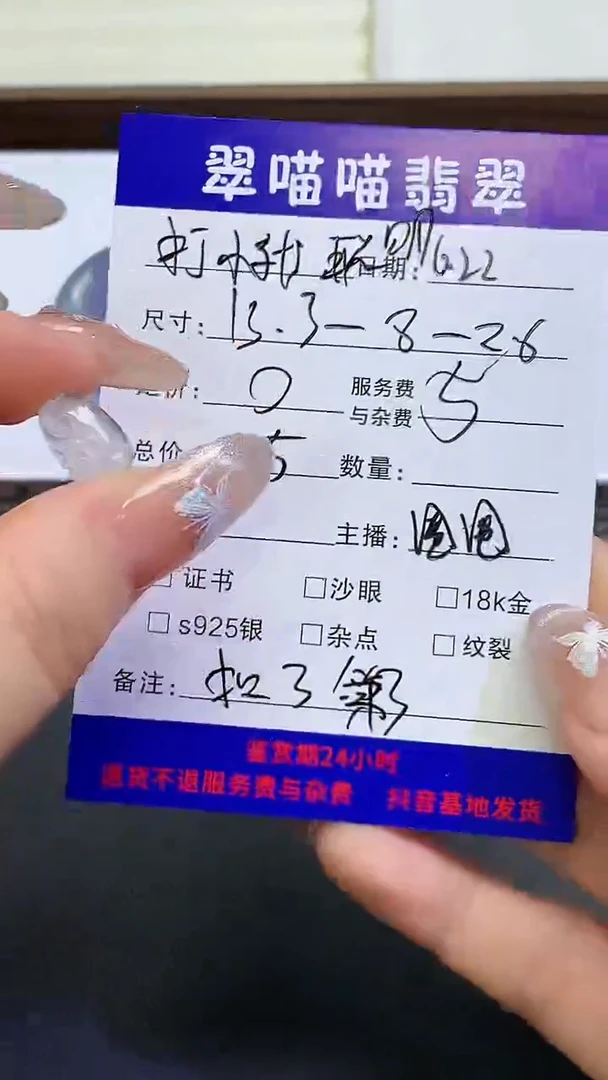 翠喵喵翡翠
日期: 6.22
尺寸: 13.3-8-26
价: 0 服务费与杂费 5
总价 5 数量:
主播: 圆圆
证书 □沙眼 □18k金
□ s925银 □杂点 □纹裂
备注: 扣了
鉴赏期24小时
退货不退服务费与杂费 抖音基地发货